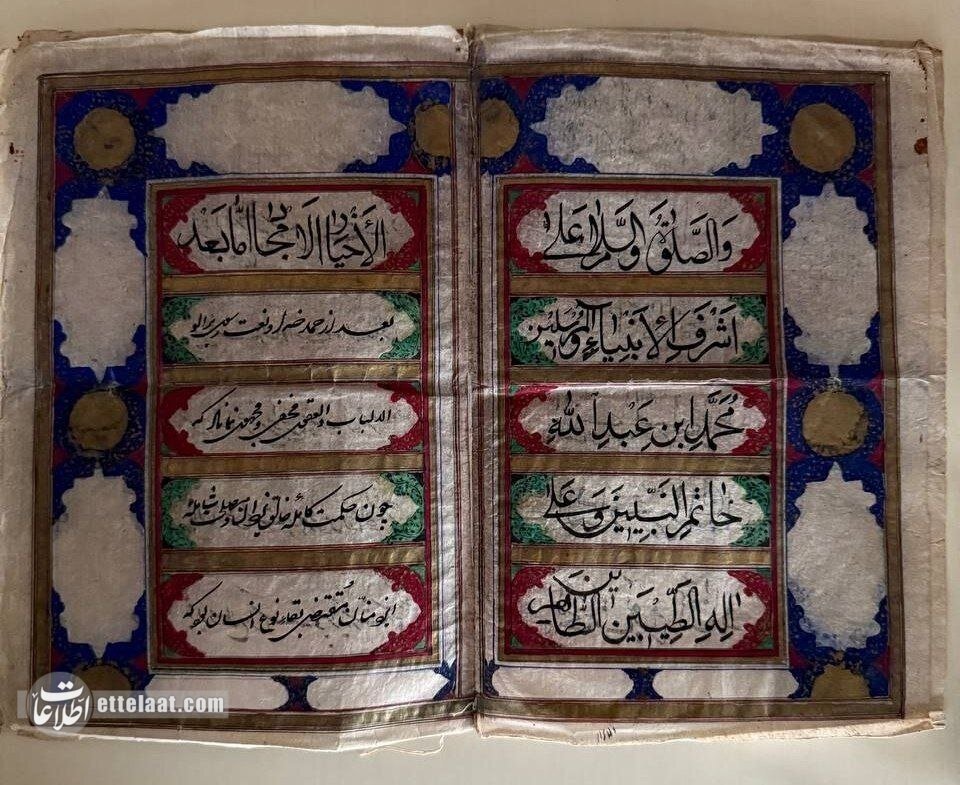 وَالصَّلٰوةُ وَالسَّلَامُ عَلٰی
اَشْرَفِ الْاَنْبِیَاءِ وَالْمُرْسَلِینَ
مُحَمَّدِ ابْنِ عَبْدِ اللهِ
خَاتَمِ النَّبِیِّینَ وَ عَلٰی
اٰلِهِ الطَّیِّبِینَ الطَّاهِرِینَ
الْاَخْیَارِ الْاَمْجَادِ اَمَّا بَعْد
بعد از حمد خدا و نعت
الالباب و العقول مخفی و محجوب نماناد که
چون حکمت کامله خالق
مقتضی بقاء نوع انسان بود که
اطلاعات
ettelaat.com